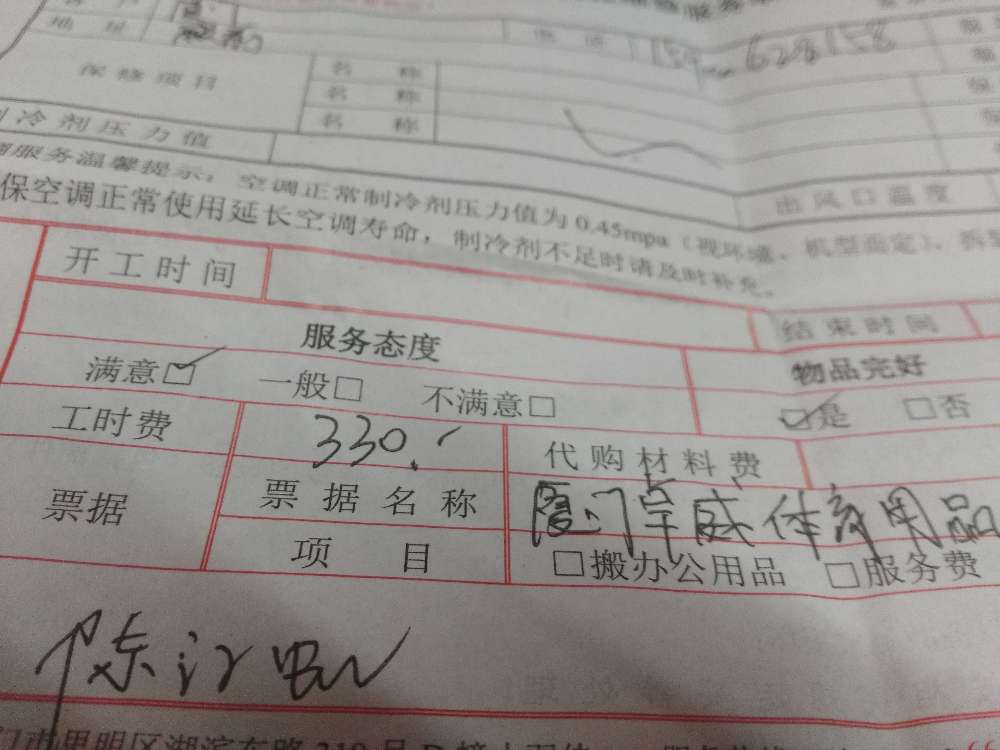 地 址
电 话
628158
保 修 项 目
名 称
名 称
名 称
制冷剂压力值
出风口温度
服务温馨提示:空调正常制冷剂压力值为0.45mpa(视环境、机型而定),拆
保空调正常使用延长空调寿命,制冷剂不足时请及时补充。
开工时间
结束时间
服务态度
物品完好
满意☑ 一般□ 不满意□
☑是 □否
工时费
330.
代购材料费
票据
票据名称
体育用品
项 目
□搬办公用品 □服务费
陈